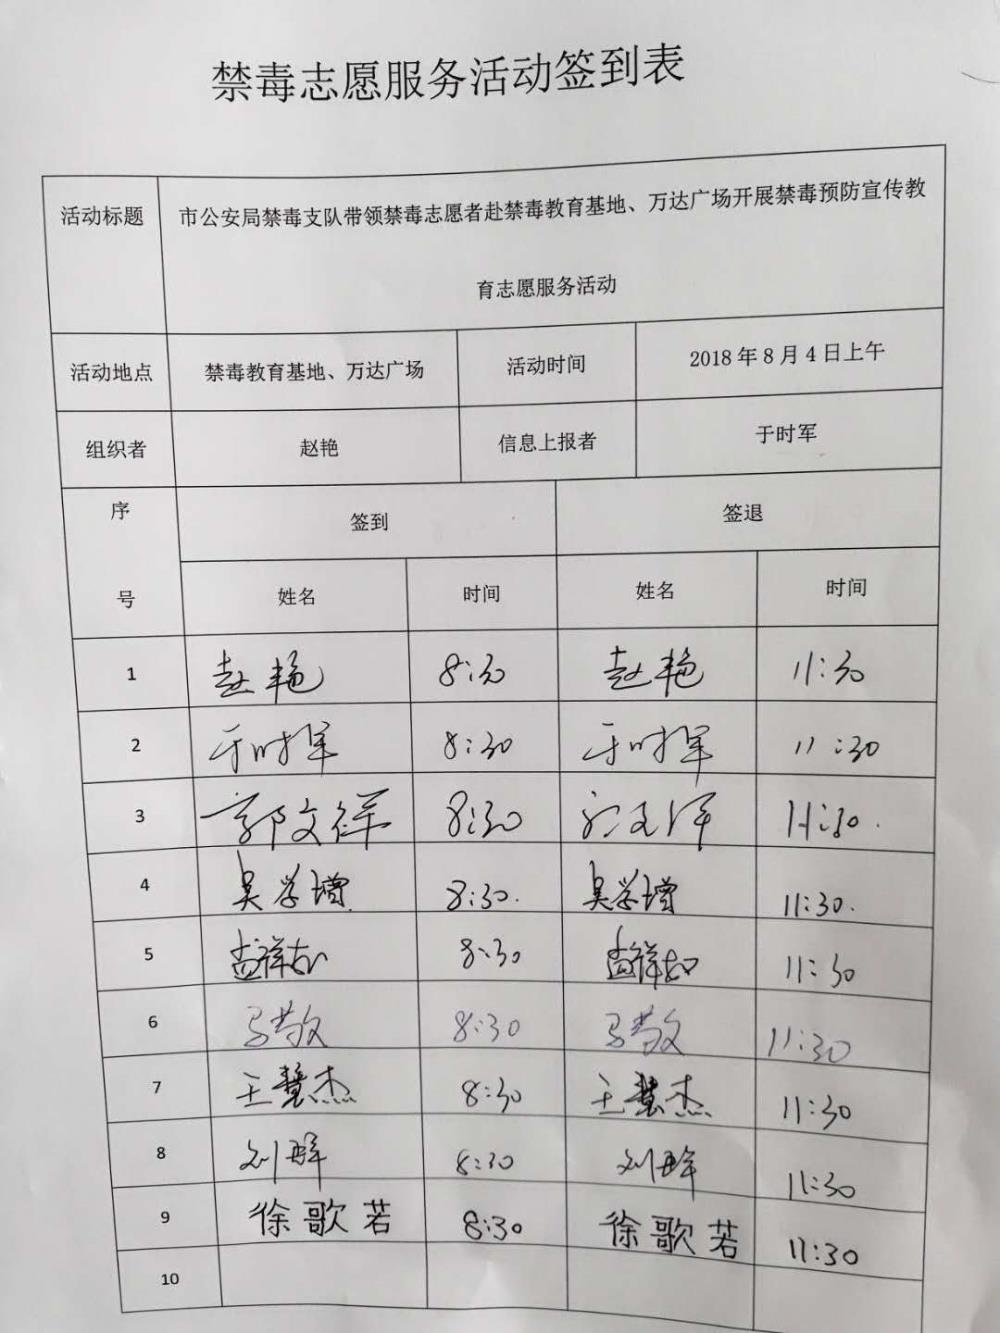 禁毒志愿服务活动签到表
活动标题 市公安局禁毒支队带领禁毒志愿者赴禁毒教育基地、万达广场开展禁毒预防宣传教
育志愿服务活动
活动地点 禁毒教育基地、万达广场 活动时间 2018年8月4日上午
组织者 赵艳 信息上报者 于时军
序 签到 签退
号 姓名 时间 姓名 时间
1 赵艳 8:30 赵艳 11:30
2 于时军 8:30 于时军 11:30
3 郭文 8:30 11:30.
4 吴学增 8:30. 吴学增 11:30.
5 孟祥 8:30 孟祥 11:30
6 马敬文 8:30 马敬文 11:30
7 王慧杰 8:30 王慧杰 11:30
8 刘 8:30 刘 11:30
9 徐歌若 8:30 徐歌若 11:30
10